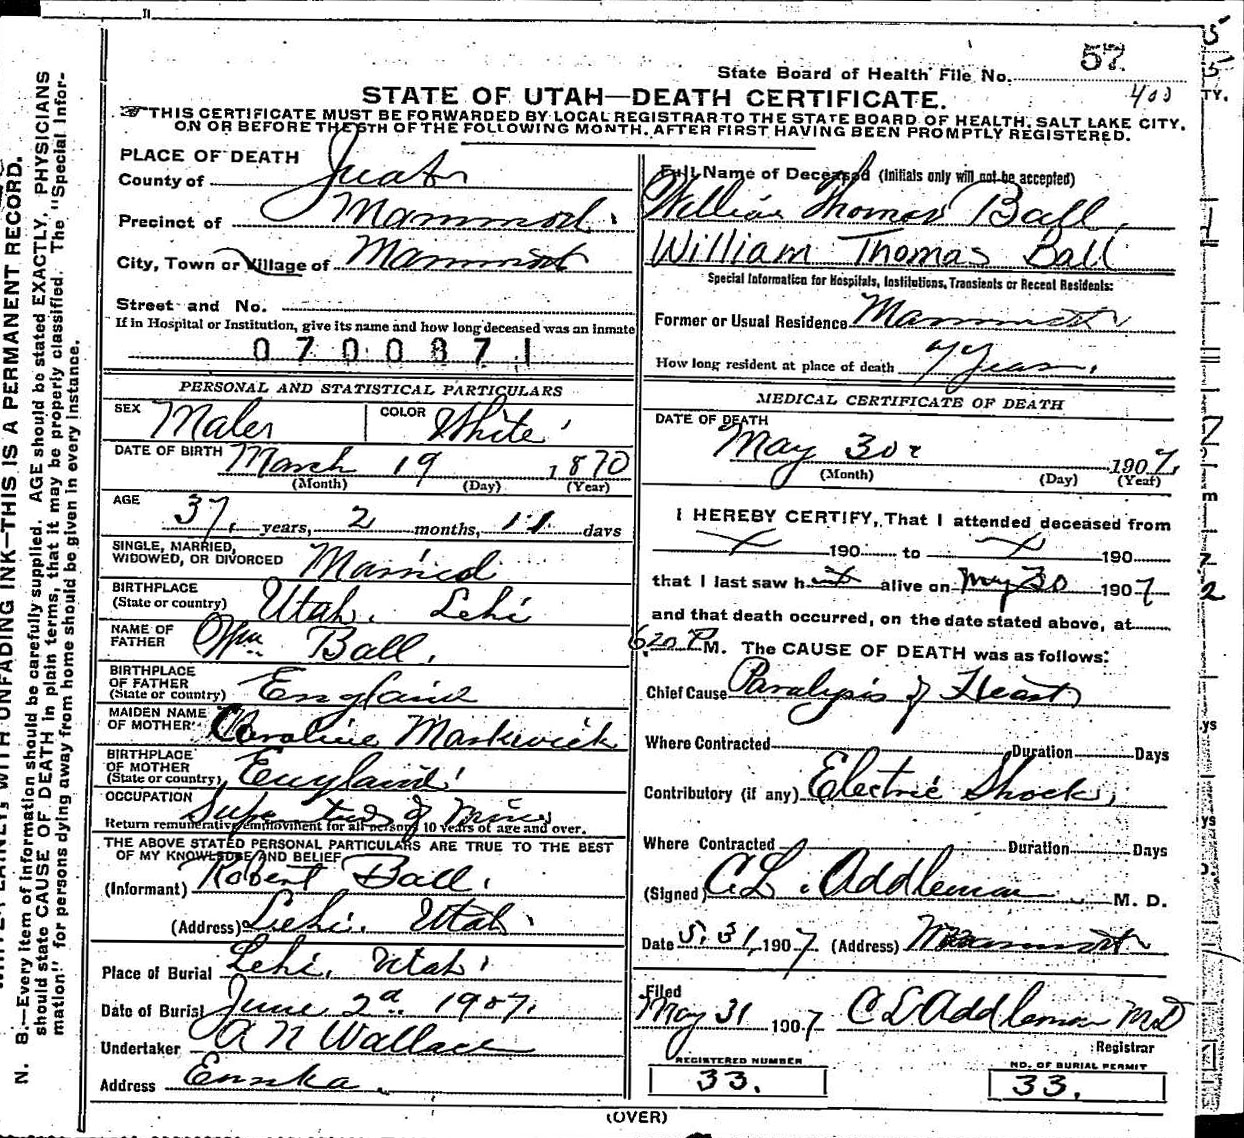 57
State Board of Health File No.
400
STATE OF UTAH—DEATH CERTIFICATE.
THIS CERTIFICATE MUST BE FORWARDED BY LOCAL REGISTRAR TO THE STATE BOARD OF HEALTH, SALT LAKE CITY,
ON OR BEFORE THE 5TH OF THE FOLLOWING MONTH, AFTER FIRST HAVING BEEN PROMPTLY REGISTERED.
PLACE OF DEATH
County of Juab
Precinct of Mammoth
City, Town or Village of Mammoth
Street and No.
If in Hospital or Institution, give its name and how long deceased was an inmate
0700871
PERSONAL AND STATISTICAL PARTICULARS
SEX Male COLOR White
DATE OF BIRTH March 19 1870
(Month) (Day) (Year)
AGE 37 years, 2 months, 11 days
SINGLE, MARRIED,
WIDOWED, OR DIVORCED Married
BIRTHPLACE
(State or country) Utah. Lehi
NAME OF
FATHER Wm Ball.
BIRTHPLACE
OF FATHER
(State or country) England
MAIDEN NAME
OF MOTHER Caroline Markwick
BIRTHPLACE
OF MOTHER
(State or country) England
OCCUPATION
of Mine
Return remunerative employment for all persons 10 years of age and over.
THE ABOVE STATED PERSONAL PARTICULARS ARE TRUE TO THE BEST
OF MY KNOWLEDGE AND BELIEF
(Informant) Robert Ball.
(Address) Lehi. Utah.
Place of Burial Lehi, Utah.
Date of Burial June 2d 1907.
Undertaker A N Wallace
Address Eureka.
Full Name of Deceased (Initials only will not be accepted)
William Thomas Ball.
William Thomas Ball
Special Information for Hospitals, Institutions, Transients or Recent Residents:
Former or Usual Residence Mammoth
How long resident at place of death 7 Years.
MEDICAL CERTIFICATE OF DEATH
DATE OF DEATH
May 30 1907,
(Month) (Day) (Year)
I HEREBY CERTIFY, That I attended deceased from
190 to 190
that I last saw h alive on May 30 1907
and that death occurred, on the date stated above, at
6.20 P M. The CAUSE OF DEATH was as follows:
Chief Cause Paralysis of Heart
Where Contracted Duration Days
Contributory (if any) Electric Shock,
Where Contracted Duration Days
(Signed) C.L. Addleman M. D.
Date 5.31, 1907. (Address) Mammoth
Filed
May 31 1907 C L Addleman MD
Registrar
REGISTERED NUMBER
33.
NO. OF BURIAL PERMIT
33.
(OVER)
WITH UNFADING INK—THIS IS A PERMANENT RECORD.
N. B.—Every item of information should be carefully supplied. AGE should be stated EXACTLY. PHYSICIANS
should state CAUSE OF DEATH in plain terms, that it may be properly classified. The "Special Infor-
mation" for persons dying away from home should be given in every instance.